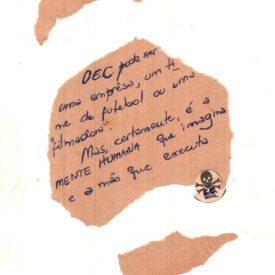 DEC pode ser
uma emprêsa, um ti-
me de futebol ou uma
"filmadora".
Mas, certamente, é a
MENTE HUMANA que imagina
e a mão que executa